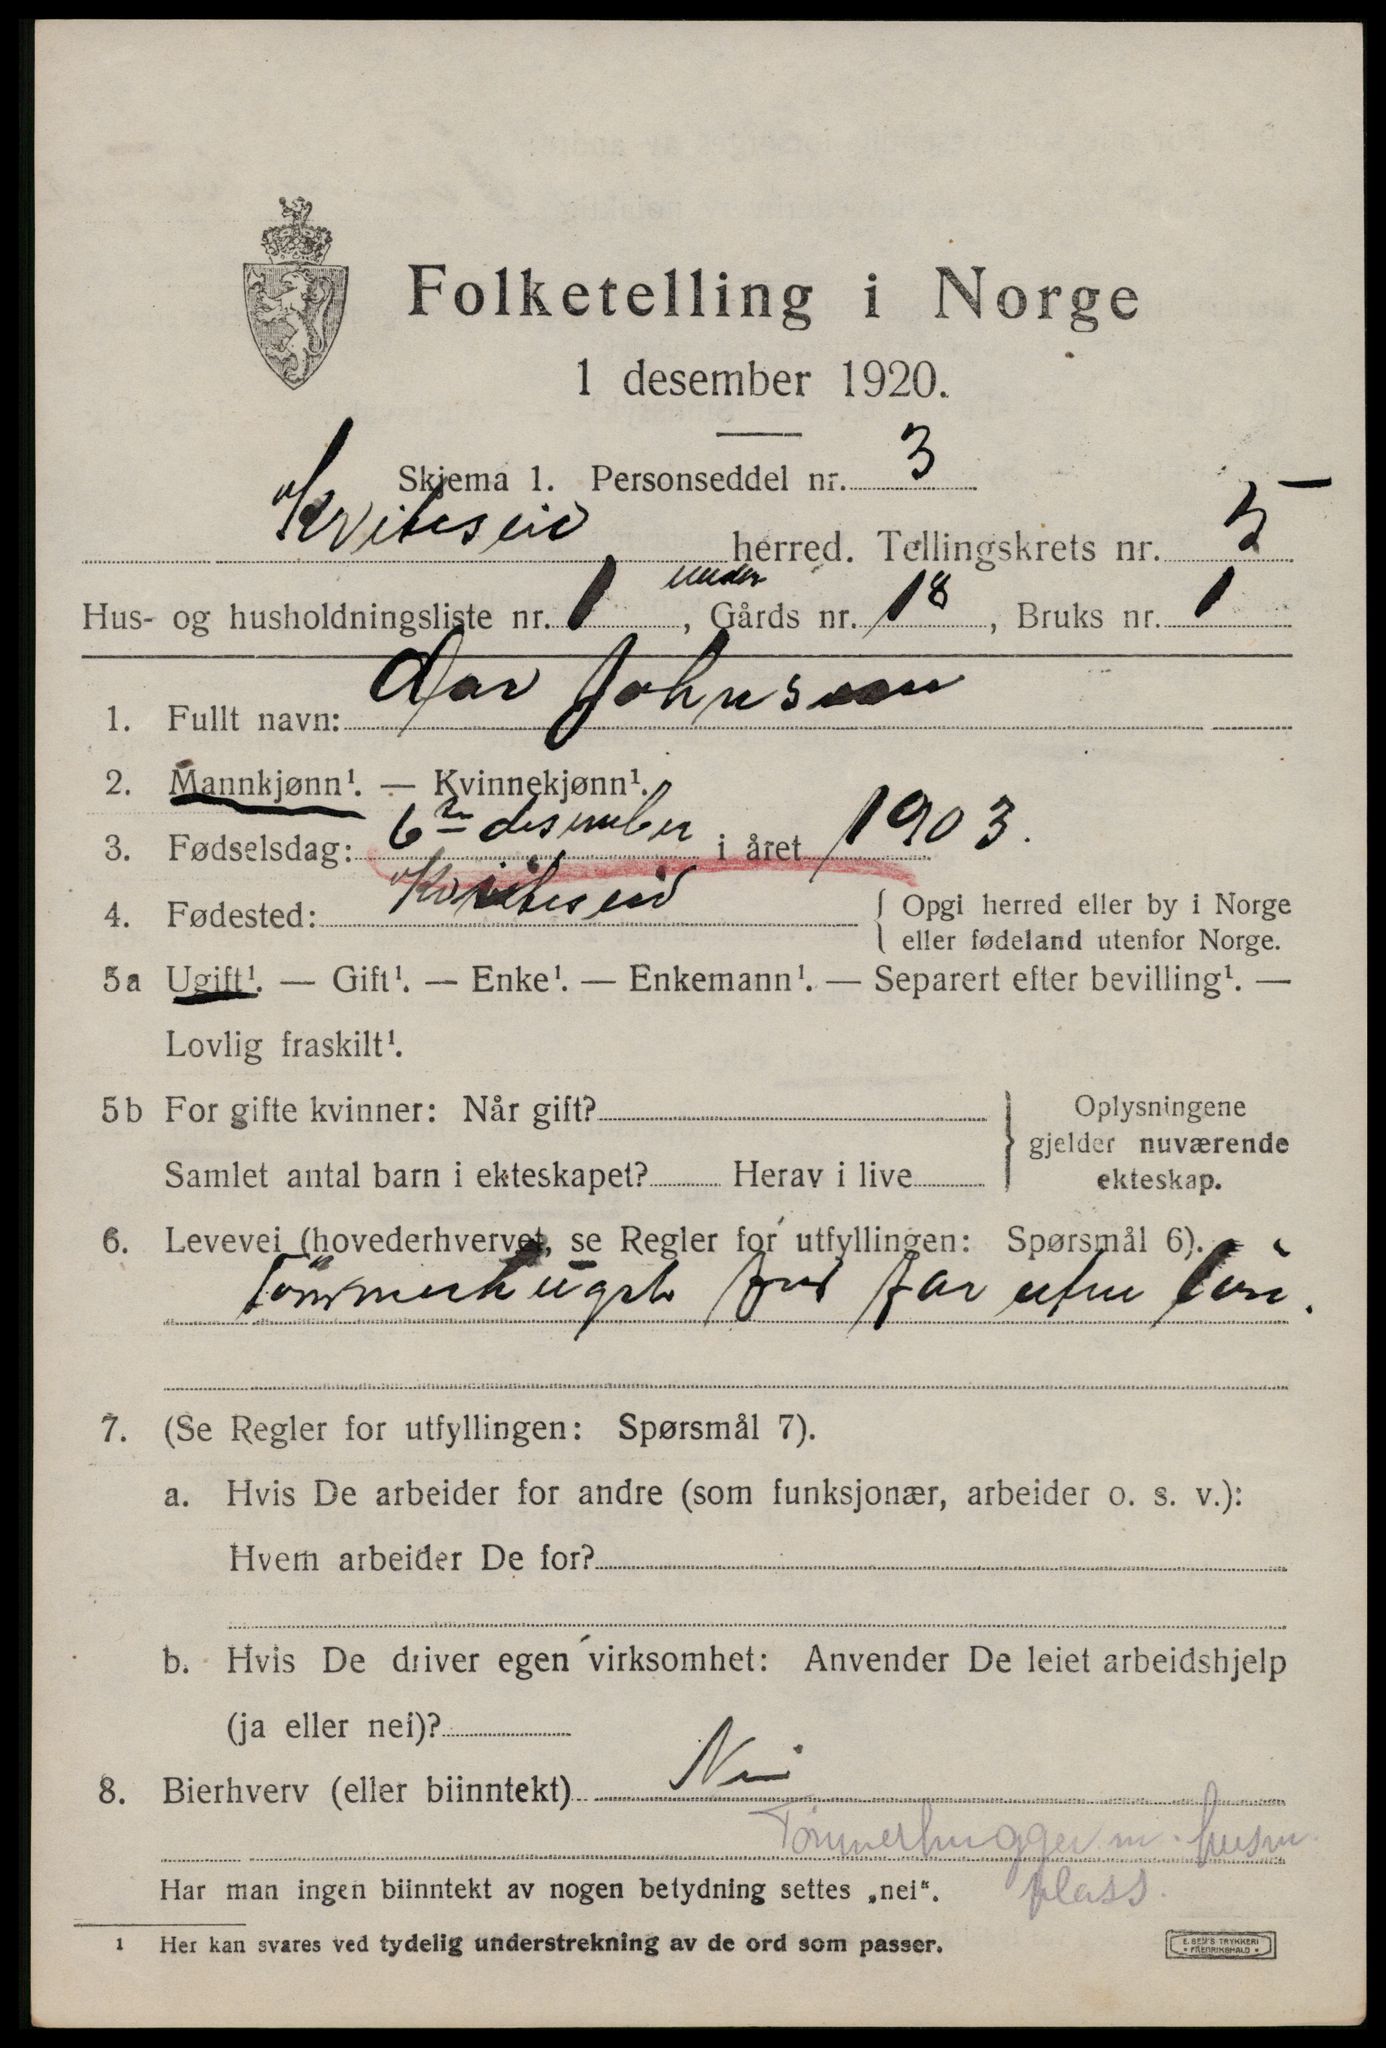 Folketelling i Norge
1 desember 1920.
Skjema 1. Personseddel nr. 3
Kviteseid herred. Tellingskrets nr. 5
under
Hus- og husholdningsliste nr. 1, Gårds nr. 18, Bruks nr. 1
1. Fullt navn: Johnsen
2. Mannkjønn¹. — Kvinnekjønn¹.
3. Fødselsdag: 6te desember i året 1903.
4. Fødested: Kviteseid { Opgi herred eller by i Norge
eller fødeland utenfor Norge.
5a Ugift¹. — Gift¹. — Enke¹. — Enkemann¹. — Separert efter bevilling¹. —
Lovlig fraskilt¹.
5b For gifte kvinner: Når gift? } Oplysningene
gjelder nuværende
ekteskap.
Samlet antal barn i ekteskapet? Herav i live
6. Levevei (hovederhvervet, se Regler for utfyllingen: Spørsmål 6).
Tømmerhugst far uten løn.
7. (Se Regler for utfyllingen: Spørsmål 7).
a. Hvis De arbeider for andre (som funksjonær, arbeider o. s. v.):
Hvem arbeider De for?
b. Hvis De driver egen virksomhet: Anvender De leiet arbeidshjelp
(ja eller nei)?
8. Bierhverv (eller biinntekt) Nei
Tømmerhugger m. husm.
plass.
Har man ingen biinntekt av nogen betydning settes „nei“.
1 Her kan svares ved tydelig understrekning av de ord som passer.
E. SEM'S TRYKKERI
• FREDRIKSHALD •